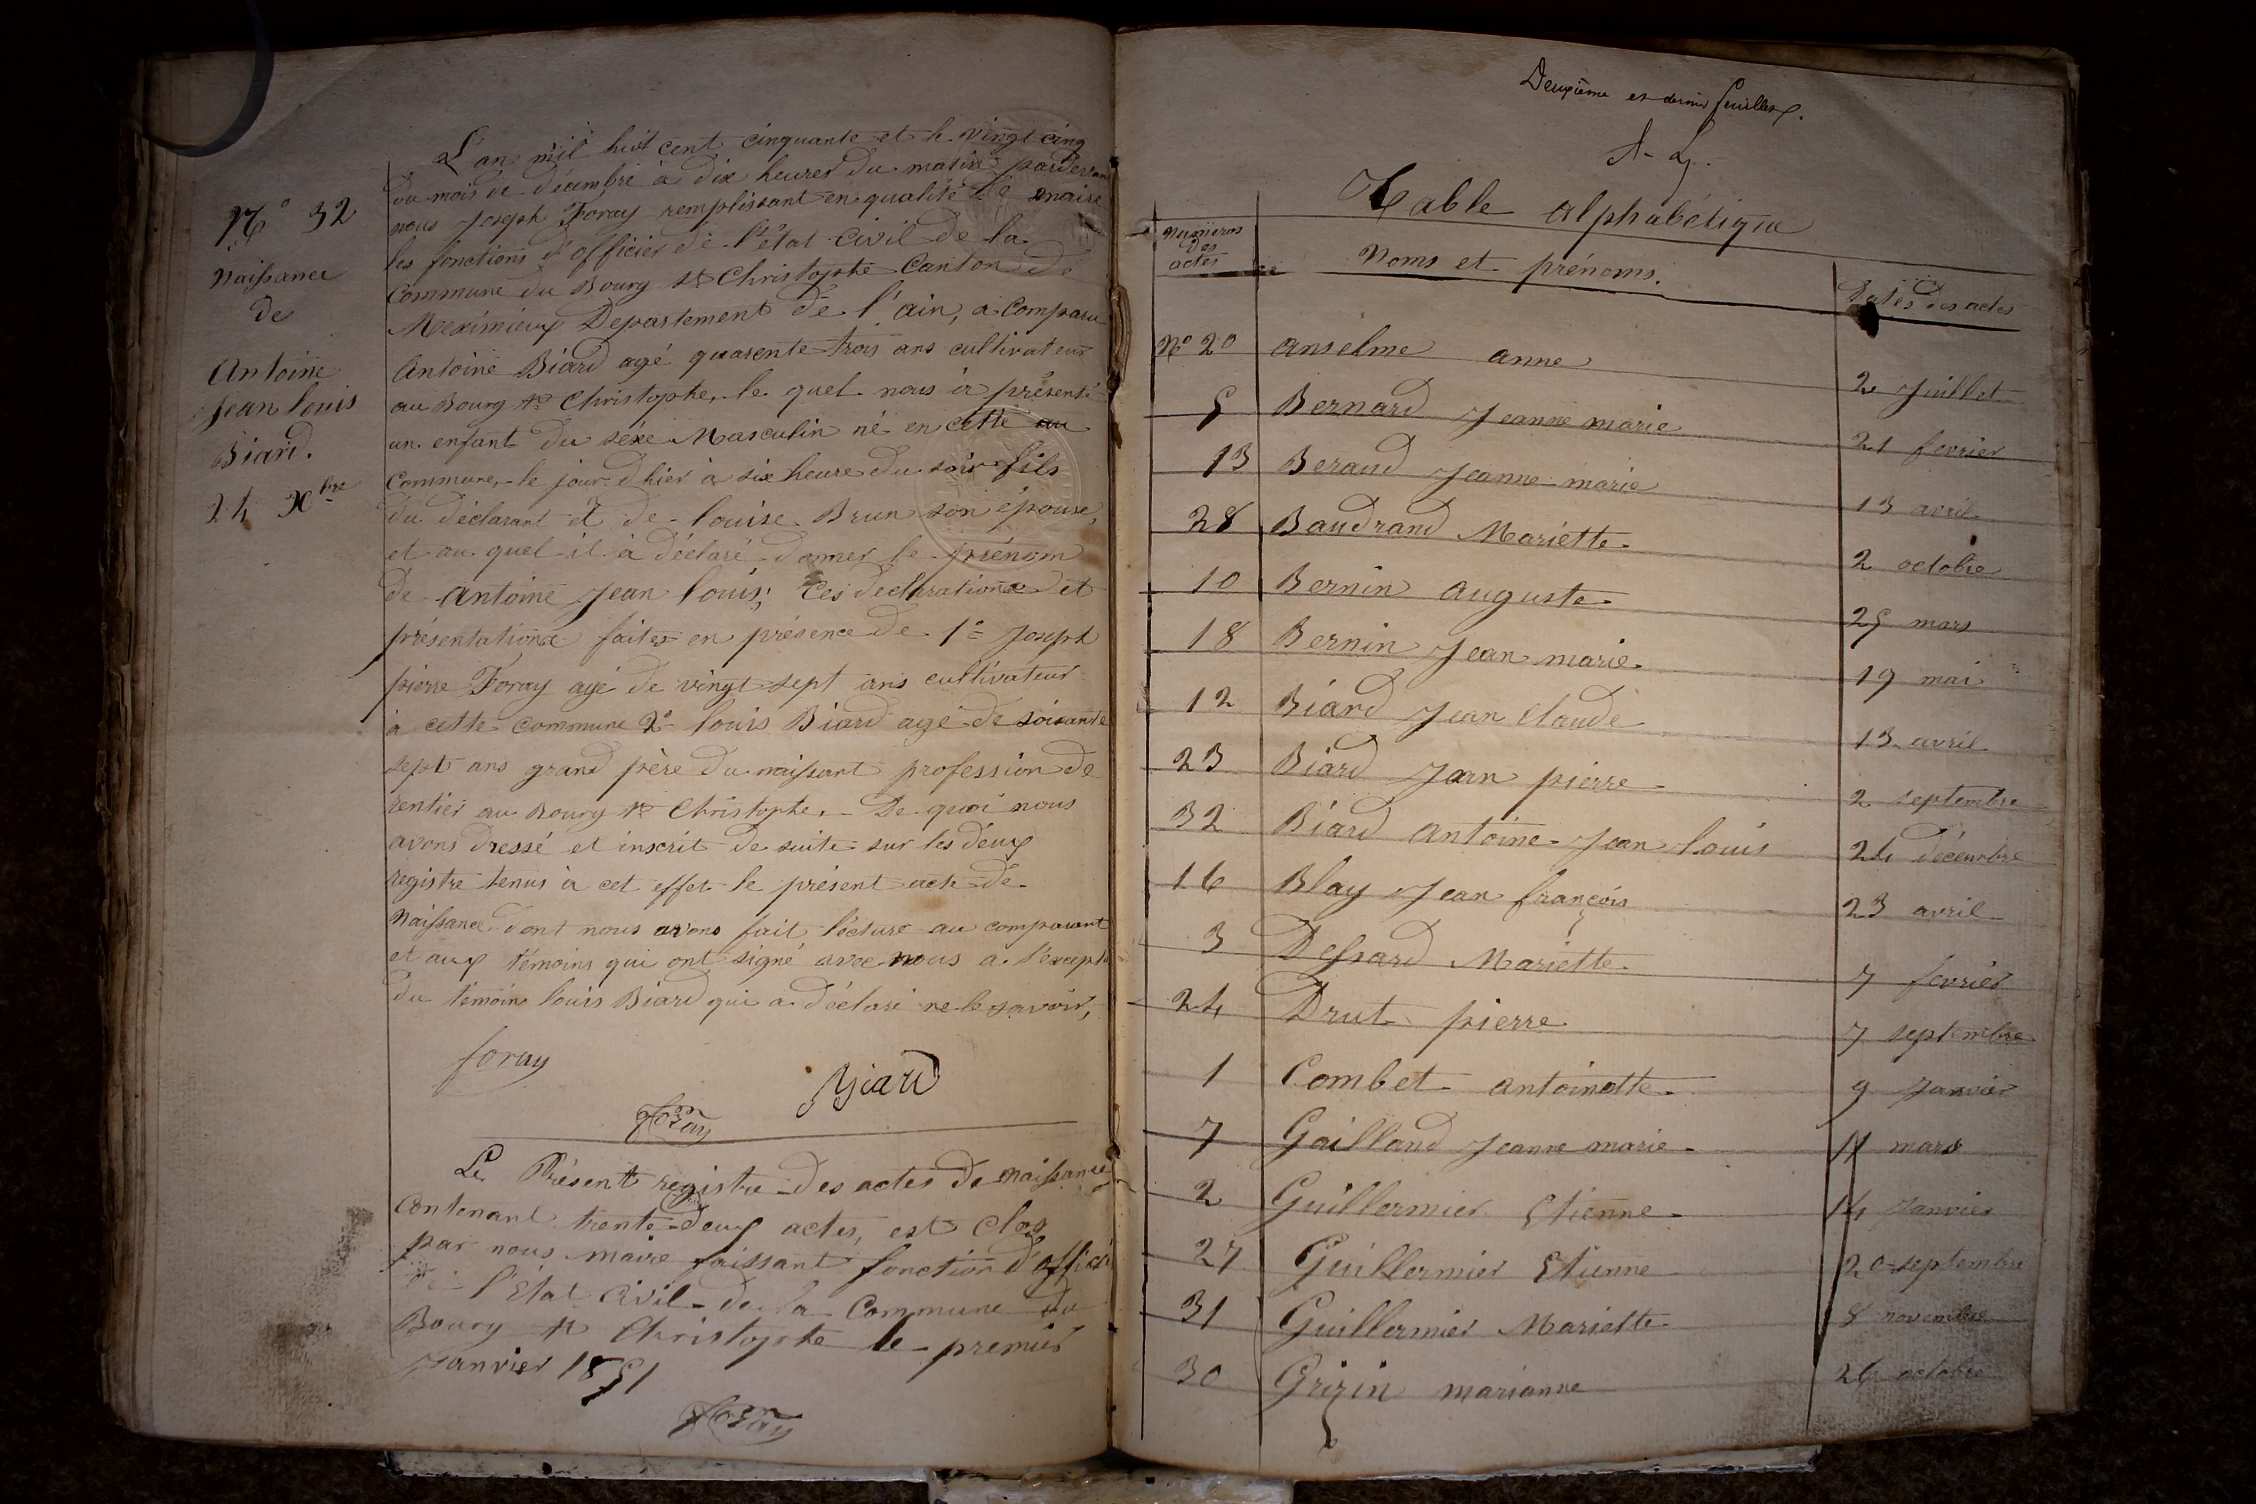 L'an mil huit cent cinquante et le vingt cinq
du mois de décembre à dix heures du matin pardevant
nous Joseph Foray remplissant en qualité de maire
les fonctions d'officier de l'état civil de la
Commune du Bourg St Christophe Canton de
Meximieux Departement de l'ain, a comparu
Antoine Biard agé quarente trois ans cultivateur
au Bourg St Christophe, le quel nous à présenté
un enfant du séxe Masculin né en cette au
Commune, le jour d'hier à six heure du soir fils
du déclarant et de louise Brun son épouse,
et au quel il à déclaré donner le prénom
de Antoine Jean louis; Ces declarations et
présentations faites en présence de 1o Joseph
pierre Foray agé de vingt sept ans cultivateur
à cette commune 2o louis Biard agé de soixante
sept ans grand père du naissant profession de
rentier au Bourg St Christophe. De quoi nous
avons dressé et inscrit de suite sur les deux
registre tenus à cet effet le présent acte de
Naissance dont nous avons fait lécture au comparant
et aux témoins qui ont signé avec nous a l'excepté
du témoin louis Biard qui a déclaré ne le savoir,
foray
Biard
Foray
No 32
Naissance
de
Antoine
Jean louis
Biard.
24 Xbre
Le Présent registre des actes de naissance
Contenant trente-deux actes, est clos
par nous maire faissant fonction d'officier
de l'État Civil de la Commune du
Bourg St Christophe le premier
Janvier 1851
Foray
Deuxième et dernier feuillet.
Table alphabétique
Numéros des actes Noms et prénoms. Dates des actes
No 20 anselme anne 2 Juillet
5 Bernard Jeanne marie 21 fevrier
13 Beraud Jeanne marie 13 avril
28 Baudrand Mariette 2 octobre
10 Bernin auguste 25 mars
18 Bernin Jean marie 19 mai
12 Biard Jean Claude 13 avril
23 Biard Jean pierre 2 septembre
32 Biard antoine Jean louis 24 décembre
16 Blay Jean françois 23 avril
3 Dessard Mariette 7 fevrier
24 Drut pierre 7 septembre
1 Combet antoinette 9 Janvier
7 Gailland Jeanne marie 11 mars
2 Guillermier Etienne 14 Janvier
27 Guillermier Etienne 20 septembre
31 Guillermier Mariette 8 novembre
30 Grizin marianne 26 octobre